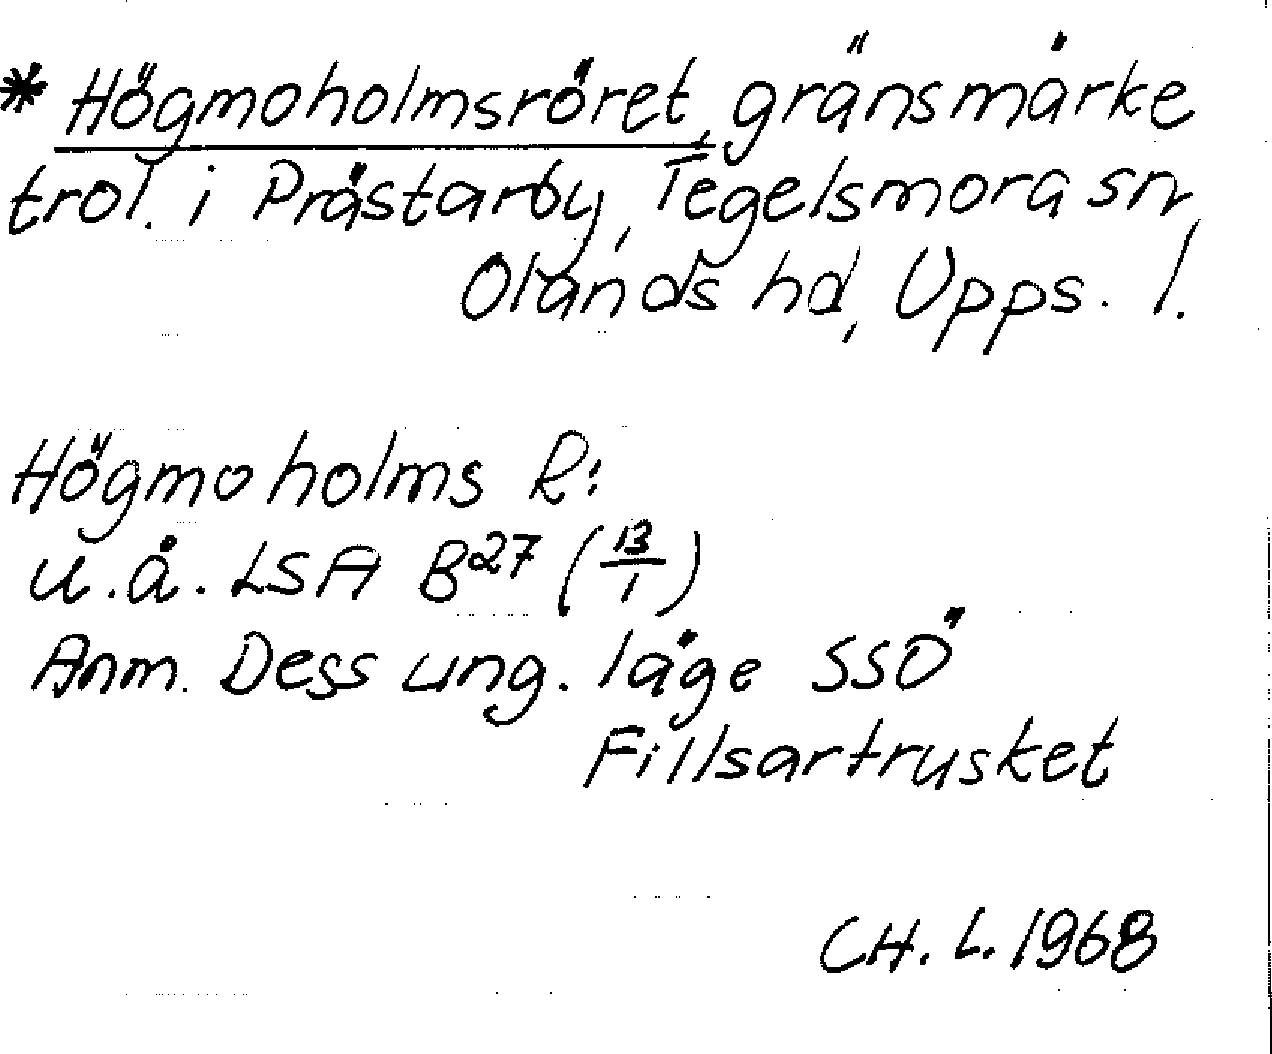 * Högmoholmsröret, gränsmärke
trol. i Prästarby, Tegelsmora sn,
Olands hd, Upps. l.
Högmoholms R:
u.å. LSA B27 (13/1)
Anm. Dess ung. läge SSÖ
Fillsarträsket
CH. L. 1968